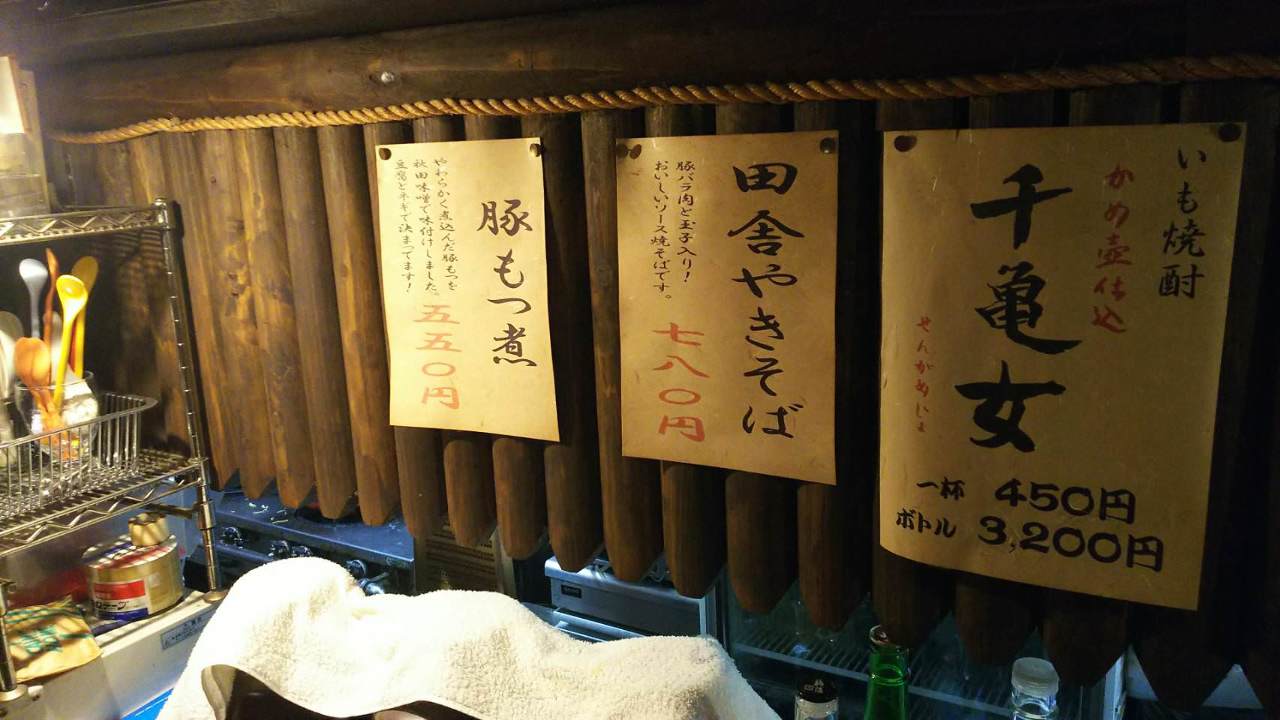 豚もつ煮
やわらかく煮込んだ豚もつを
秋田味噌で味付けしました。
豆腐とネギで決まってます!
五五〇円
田舎やきそば
豚バラ肉と玉子入り!
おいしいソース焼そばです。
七八〇円
いも焼酎
かめ壺仕込
千亀女
せんがめじょ
一杯 450円
ボトル 3,200円